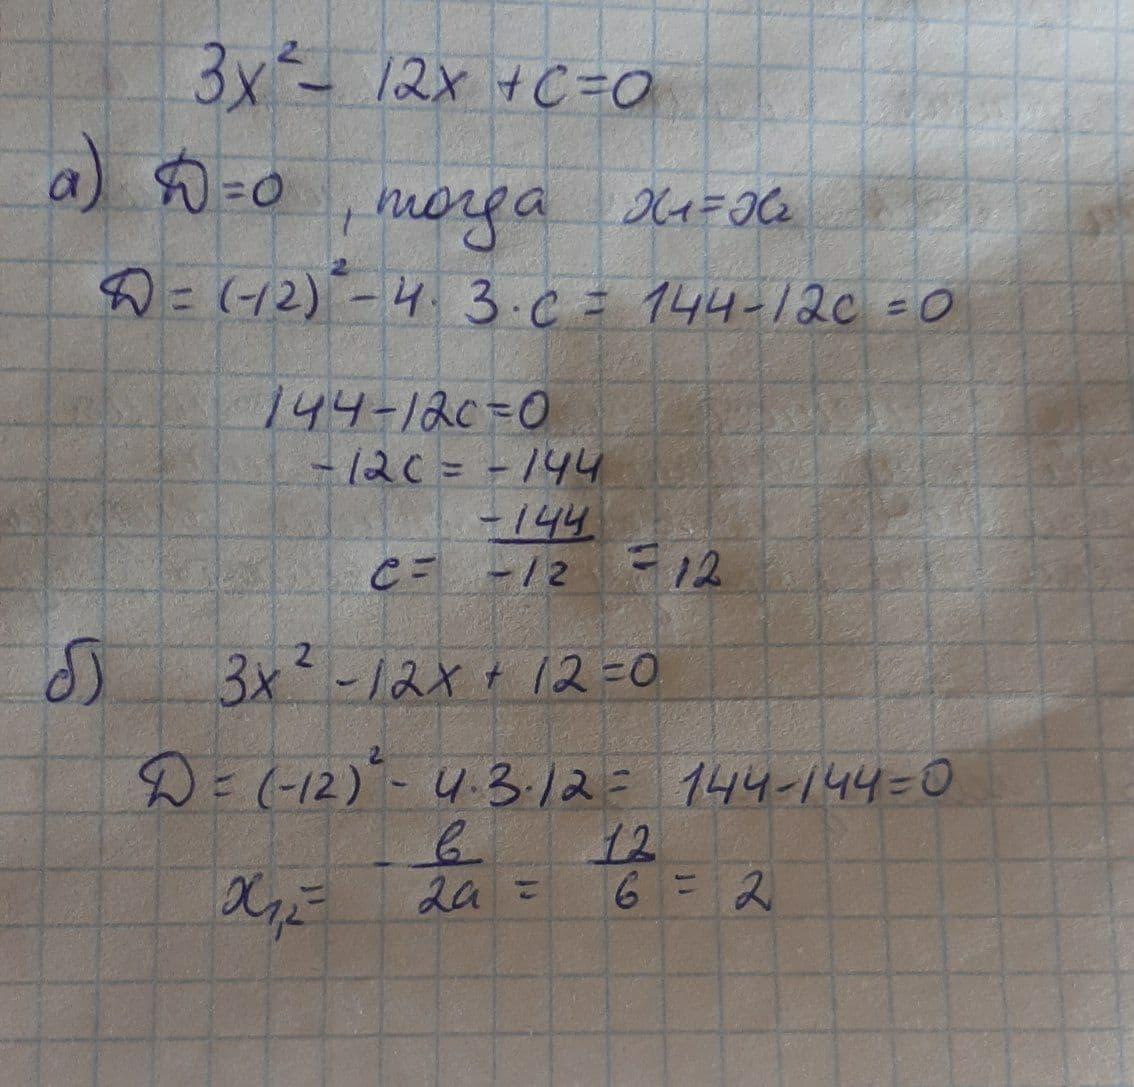 3x² - 12x + c = 0
а) D = 0, тогда x₁ = x₂
D = (-12)² - 4 · 3 · c = 144 - 12c = 0
144 - 12c = 0
-12c = -144
c = -144/-12 = 12
б) 3x² - 12x + 12 = 0
D = (-12)² - 4 · 3 · 12 = 144 - 144 = 0
x₁,₂ = - b/2a = 12/6 = 2